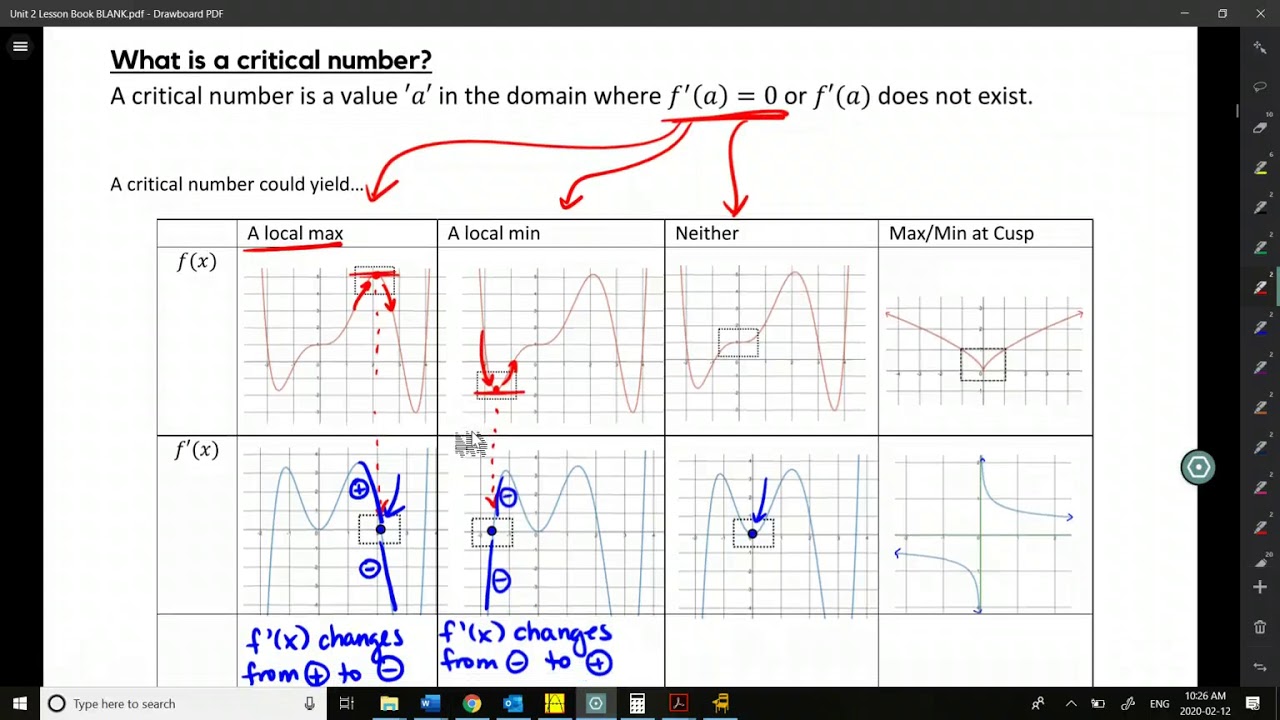 Unit 2 Lesson Book BLANK.pdf - Drawboard PDF
What is a critical number?
A critical number is a value 'a' in the domain where f'(a) = 0 or f'(a) does not exist.
A critical number could yield...
A local max A local min Neither Max/Min at Cusp
f(x)
f'(x)
+ - - -
f'(x) changes
from + to -
f'(x) changes
from - to +
Type here to search
ENG
10:26 AM
2020-02-12